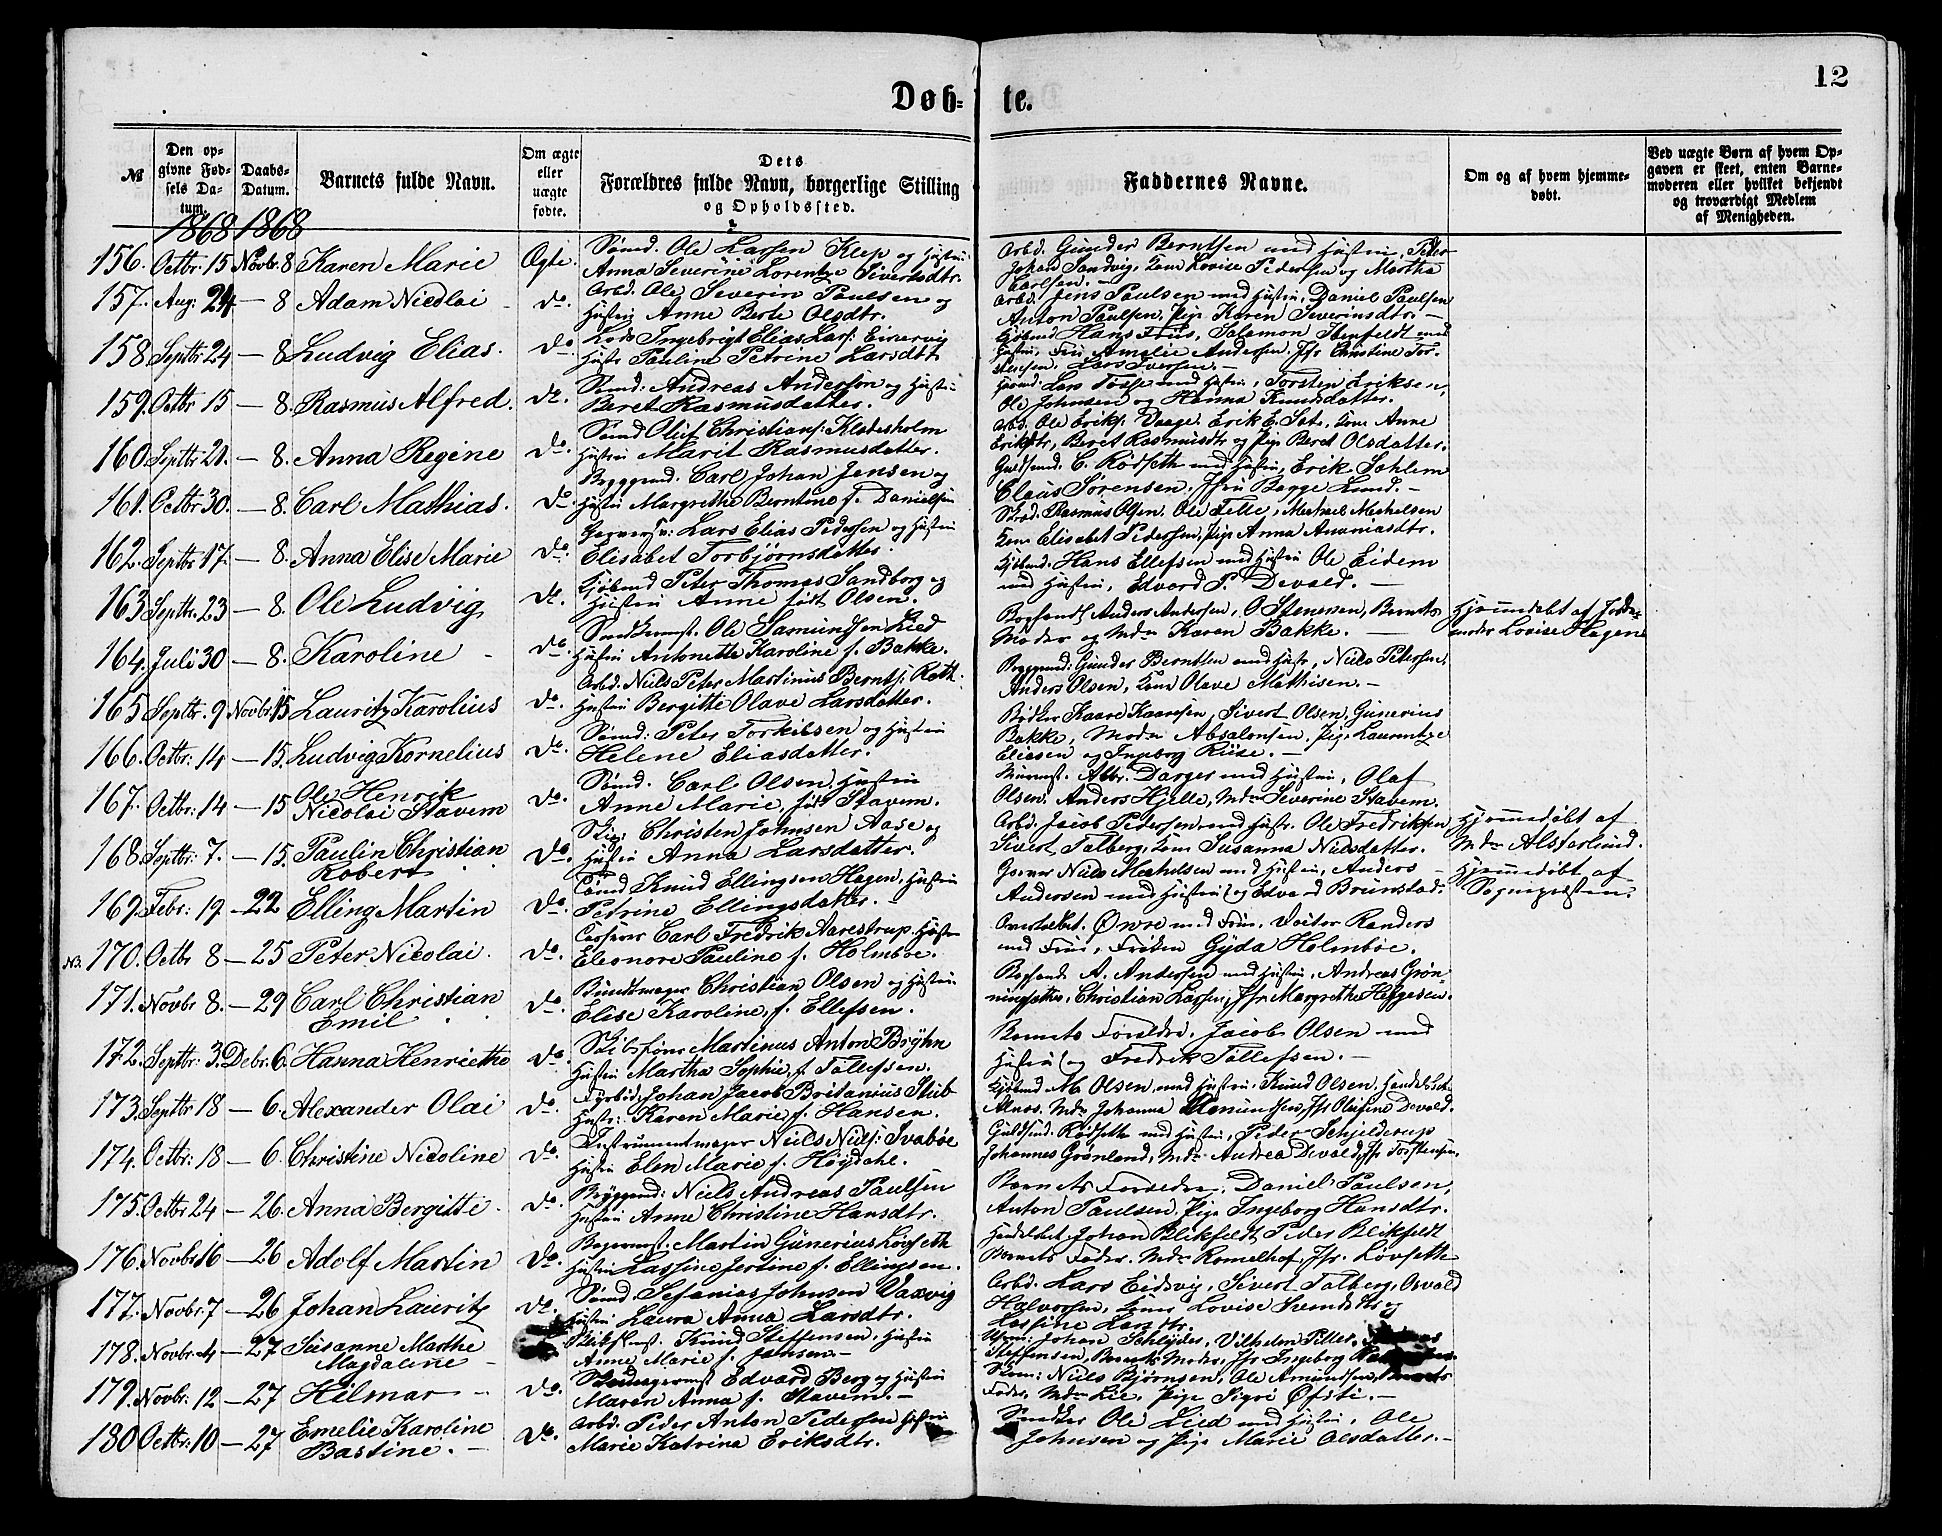 12
Døb- te.
№
Den opgivne Fødsels Datum.
Daabs-Datum.
Barnets fulde Navn.
Om ægte eller uægte fødte.
Dets Forældres fulde Navn, borgerlige Stilling og Opholdssted.
Faddernes Navne.
Om og af hvem hjemmedøbt.
Ved uægte Børn af hvem Opgaven er skeet, enten Barnemoderen eller hvilket bekjendt og troværdigt Medlem af Menigheden.
1868 1868
156. Octbr. 15 Novbr. 8 Karen Marie Ægte. Sømd. Ole Larsen Klep og Hustru
Anna Severine Lorentze Sivertsdtr.
Arbd. Gunder Berntsen med Hustru, Peter
Johan Sandvig, Kone Lovise Pedersen og Martha
Carlsen.
157. Aug. 24 — 8 Adam Nicolai do. Arbd. Ole Severin Paulsen og
Hustru Anne Berte Olsdtr.
Arbd. Jens Paulsen med Hustru, Daniel Paulsen
Anton Paulsen, Pige Karen Severinsdtr. —
158 Septbr 24 — 8 Ludvig Elias. do. Lods Ingebrigt Elias Lars:
Hustr Pauline Petrine Larsdtr
Hans Friis, Salomon med
Hustru, Amalie Andersen. Jfr Christine
Lars Iversen. —
159. Octbr 15 — 8. Rasmus Alfred. do. Sømd: Andreas Andersen og Hustru
Beret Rasmusdatter.
Lars med Hustru, Torsten Eriksen,
Ole Johnsen og Hanna Knudsdatter.
160. Septbr 21. — 8. Anna Regine do. Sømd Oluf Christians: Kladesholm
Hustru Marit Rasmusdatter.
Arbd. Ole Eriks. Erik E. Kone Anne
Eriksdtr, Beret Rasmusdtr og Pige Beret Olsdatter.
161. Octbr 30. — 8. Carl Mathias. do. Byggmd. Carl Johan Jensen og
Hustru Margrethe Berntine f. Danielsen
Guldsmd. C. Rødseth med Hustru, Erik Sohlem
Claus Sørensen. Jfru Bagge Lund. —
162. Septbr 17. — 8. Anna Elise Marie do. Lars Elias Pedersen og Hustru
Elisabet Torbjørnsdatter.
Skrd. Rasmus Olsen. Ole Michael Michelsen
Kone Elisabet Pedersen, Pige Anna Ananiasdtr.
163 Septbr. 23 — 8. Ole Ludvig do. Gjøbmd Peter Thomas Sandborg og
Hustru Anne født Olsen.
Kjøbmd. Hans Ellefsen med Hustru Ole Eidem
med Hustru, Edvard P. Devold. —
164. Juli 30 — 8. Karoline do. Ole Samundsen Lied
Hustru Antonette Karoline f. Bakke.
Bogbndr Anders Andersen, O Stenersen, Barnets
Moder og Mdm Karen Bakke. —
Hjemmedøbt af Jordemoder Lovise Hagens
165 Septbr. 9 Novbr. 15 Lauritz Karolius do. Arbd. Niels Peter Martinus Bernts: Roth.
Hustru Bergitte Olave Larsdatter.
Byggmd: Gunder Berntsen med Hustr, Niels Petersen.
Anders Olsen, Kone Olave Mathisen. —
166. Octbr: 14 — 15. Ludvig Kornelius do. Sømd: Peter Torkilsen og Hustru
Helene Eliasdatter.
Bødker Kaare Kaaresen, Sivert Olsen, Gunerius
Bakke, Mdm Absalonsen, Pige Laurentze
Eliesen og Ingeborg Riise. —
167. Octbr: 14 — 15 Ole Henrik
Nicolai Stavem do. Sømd. Carl Olsen, Hustru
Anne Marie, født Stavem.
Murmst. Albr. Darger med Hustru, Olaf
Olsen. Anders Hjelle, Mdm Severine Stavem.
168. Septbr: 7. — 15. Paulin Christian
Robert do. Skip: Christen Johnsen Aase og
Hustru Anna Larsdatter.
Arbd. Jacob Pedersen med Hustr. Ole Fredriksen
Sivert Talberg, Kone Susanna Nielsdatter.
Hjemmedøbt af
Mdm Alsterlund.
169. Febr: 19 — 22 Elling Martin do. Sømd Knud Ellingsen Hagen, Hustru
Petrine Ellingsdatter.
Garver Niels Michelsen med Hustru, Anders
Andersen med Hustru og Edvard Brunstad.
Hjemmedøbt af
Sognepræsten.
NB. 170. Octbr 8 — 25 Peter Nicolai. do. Casserer Carl Fredrik Aarestrup, Hustru
Eleonore Pauline f. Holmboe.
Overtoldbet. Øwre med Frue, Doctor Randers
med Frue, Frøken Gyda Holmboe.
171. Novbr 8. — 29 Carl Christian
Emil do. Buntmager Christian Olsen og Hustru
Elise Karoline, f. Ellefsen.
Bogbndr A. Andersen med Hustru, Andreas Grønningsæther, Christian Larsen, Jfr Margrethe Helgesen.
172. Septbr: 3. Debr: 6. Hanna Henriette do. Skibsfører Martinus Anton Bryhn
Hustru Martha Sophie, f. Tollefsen.
Barnets Forældre, Jacob Olsen med
Hustru og Fredrik Tollefsen. —
173. Septbr 18 — 6. Alexander Olai do. Fyrbød. Johan Jacob Britanius Stub
Hustr: Karen Marie, f. Hansen.
Kjøbmd M. Olsen, med Hustru. Knud Olsen, Handelsb.
Alnæs. Mdm Johanna Amundsen, Jfr Olefine Devold.
174. Octbr: 18 — 6. Christine Nicoline do. Instrumentmager Niels Niels: Svabøe
Hustru Elen Marie f. Høydahl.
Guldsmd: Rødseth med Hustru, Peder Schjelderup
Johannes Grønland, Mdm Andrea Devold, Jfr Torstensen.
175. Octbr 24 — 26. Anna Bergitte. do. Byggmd: Niels Andreas Paulsen
Hustru Anne Christine Hansdtr.
Barnets Forældre. Daniel Paulsen,
Anton Paulsen, Pige Ingeborg Hansdtr.
176. Novbr 16 — 26 Adolf Martin do. Bagermst. Martin Gunerius Løvseth
Hustru Lassine Jertine f. Ellingsen.
Handelsbet. Johan Blikfeldt, Peder Blikfeldt
Barnets Fader. Mdm Romelhof, Jfr. Løvseth
177. Novbr. 7 — 26 Johan Lauritz do. Sømd Sefanias Johnsen Vaxvig
Hustru Laura Anna Larsdtr.
Arbd. Lars Eidsvig, Sivert Talberg, Osvald
Halvorsen, Kone Lovise Svendsdtr og
Lassine Larsdtr.
178. Novbr. 4 — 27 Susanne Marthe
Magdalene — Knud Steffensen, Hustru
Anne Marie f. Jansen. —
Johan Schlyder, Vilhelm
Steffensen, Barnets Moder, Jfr Ingeborg
179. Novbr: 12 — 27 Hilmar — do. Edvard Berg og Hustru
Maren Anna f. Stavem. —
Skom: Niels Bjørnsen, Ole Amundsen, Barnets
Fader, Mdm Lie, Pige Sigri Øfsti. —
180 Octbr: 10 — 27 Emelie Karoline
Bastine. — do. Arbd. Peder Anton Pedersen Hustru
Marie Katrina Eriksdtr.
Snedker Ole Lied med Hustru, Ole
Johnsen og Pige Marie Olsdatter. —